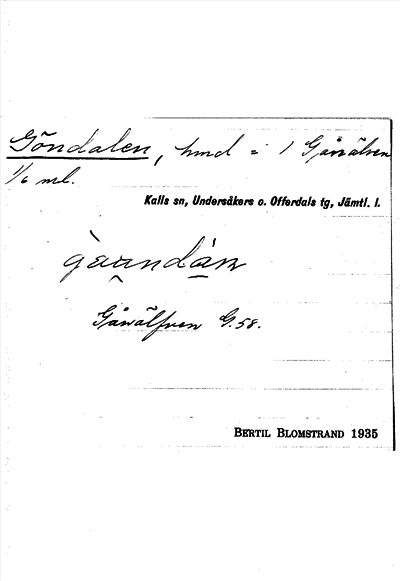 Göndalen, hmd = / Gåsälven
1/6 ml.
Kalls sn, Undersåkers o. Offerdals tg, Jämtl. l.
Gåsälfven G.58.
BERTIL BLOMSTRAND 1935